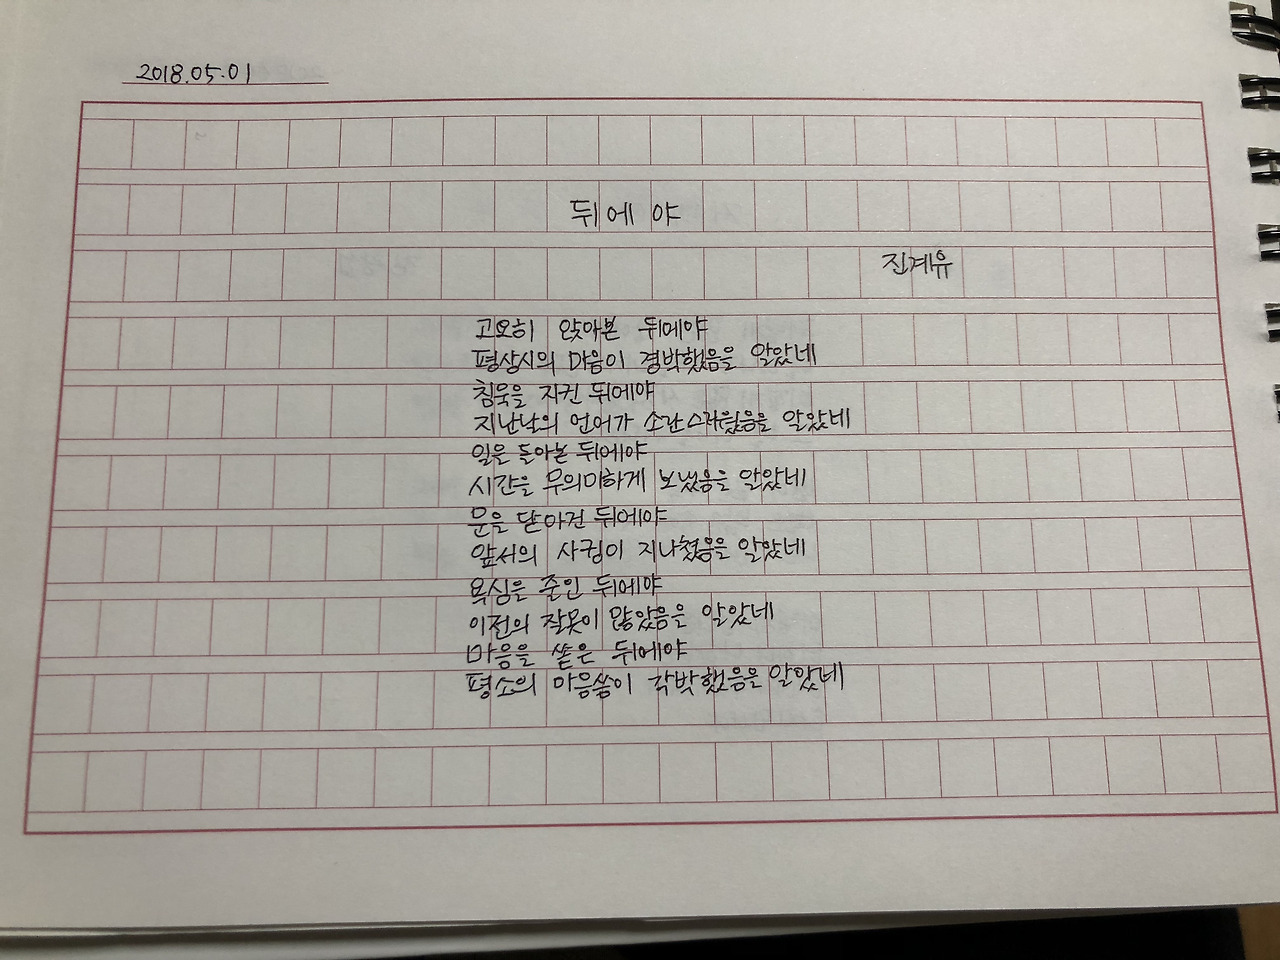 2018.05.01
뒤에야
진계유
고요히 앉아본 뒤에야
평상시의 마음이 경박했음을 알았네
침묵을 지킨 뒤에야
지난날의 언어가 소란스러웠음을 알았네
일을 돌아본 뒤에야
시간을 무의미하게 보냈음을 알았네
문을 닫아건 뒤에야
앞서의 사귐이 지나쳤음을 알았네
욕심을 줄인 뒤에야
이전의 잘못이 많았음을 알았네
마음을 쏟은 뒤에야
평소의 마음씀이 각박했음을 알았네